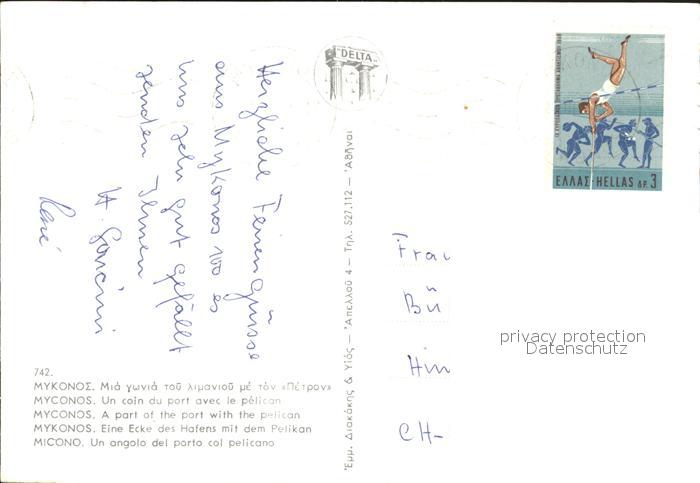 Herzliche Feriengrüsse
aus Mykonos wo es
uns sehr gut gefällt
senden Ihnen
H.
René
742.
ΜΥΚΟΝΟΣ. Μιά γωνιά τοῦ λιμανιοῦ μέ τὸν «Πέτρον»
MYCONOS. Un coin du port avec le pélican
MYCONOS. A part of the port with the pelican
MYKONOS. Eine Ecke des Hafens mit dem Pelikan
MICONO. Un angolo del porto col pelicano
DELTA
Ἐμμ. Διακάκης & Υἱός – Ἀπελλοῦ 4 – Τηλ. 527.112 – Ἀθῆναι
ΕΛΛΑΣ-HELLAS ΔΡ. 3
Frau
Bü
Hin
CH-
privacy protection
Datenschutz